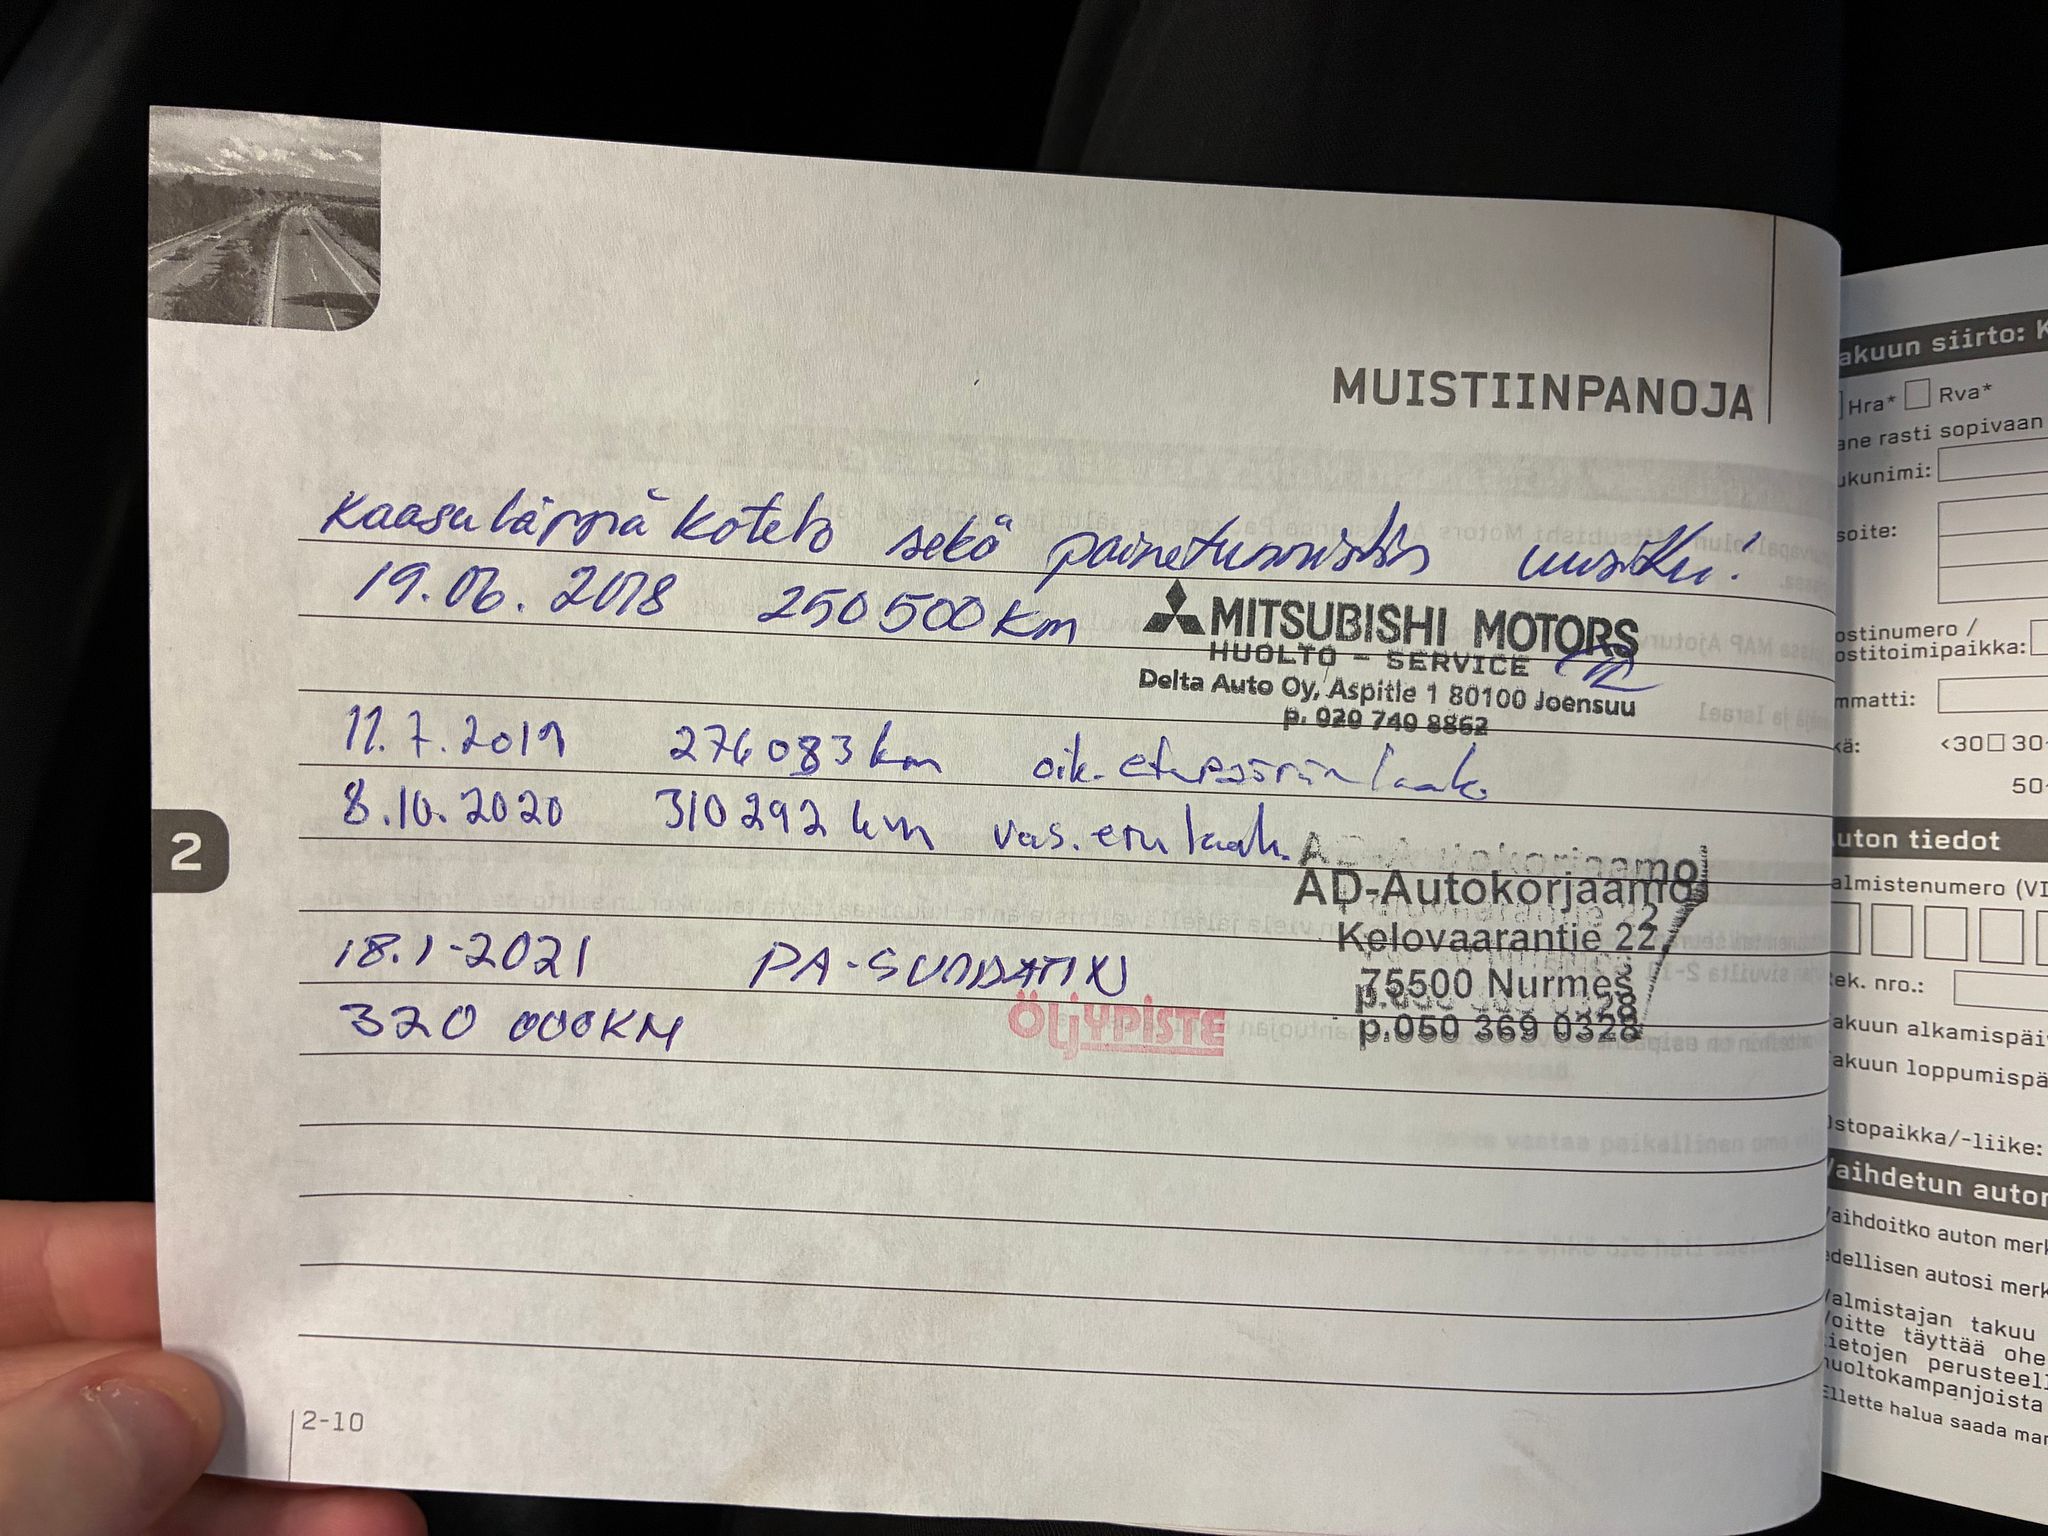 MUISTIINPANOJA
Kaasuläppä kotelo sekä painetunnistin uusittu!
19.06.2018 250500 km
MITSUBISHI MOTORS
HUOLTO - SERVICE
Delta Auto Oy, Aspitie 1 80100 Joensuu
p. 020 740 8862
11.7.2019 276083 km oik. etupyörän laak.
8.10.2020 310292 km vas. etu laak.
AD-Autokorjaamo
AD-Autokorjaamo
Kelovaarantie 22
75500 Nurmes
p.050 369 0328
18.1-2021 PA-SUODATIN
320 000KM
ÖLJYPISTE
2
2-10
akuun siirto: K
Hra* Rva*
ane rasti sopivaan
ukunimi:
soite:
ostinumero /
ostitoimipaikka:
mmatti:
kä: <30 30-
50-
uton tiedot
almistenumero (VI
ek. nro.:
akuun alkamispäi
akuun loppumispä
Ostopaikka/-liike:
Vaihdetun auton
Vaihdoitko auton merk
edellisen autosi merk
Valmistajan takuu
Voitte täyttää ohe
tietojen perusteell
huoltokampanjoista
Ellette halua saada mar